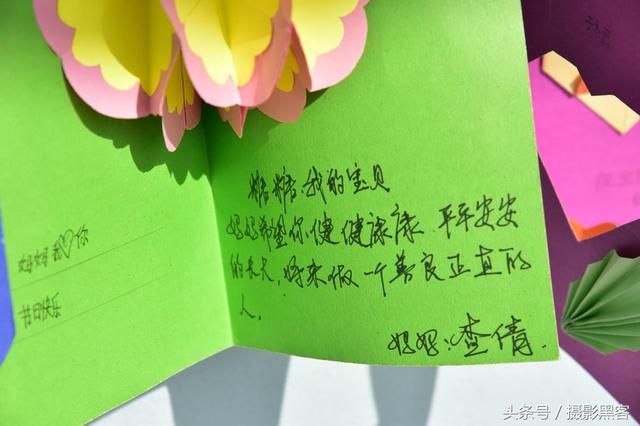 妈妈我♡你
节日快乐
糖糖我的宝贝
妈妈希望你健健康康、平平安安
的长大，将来做一个善良正直的
人.
妈妈：查倩.
头条号／摄影黑客